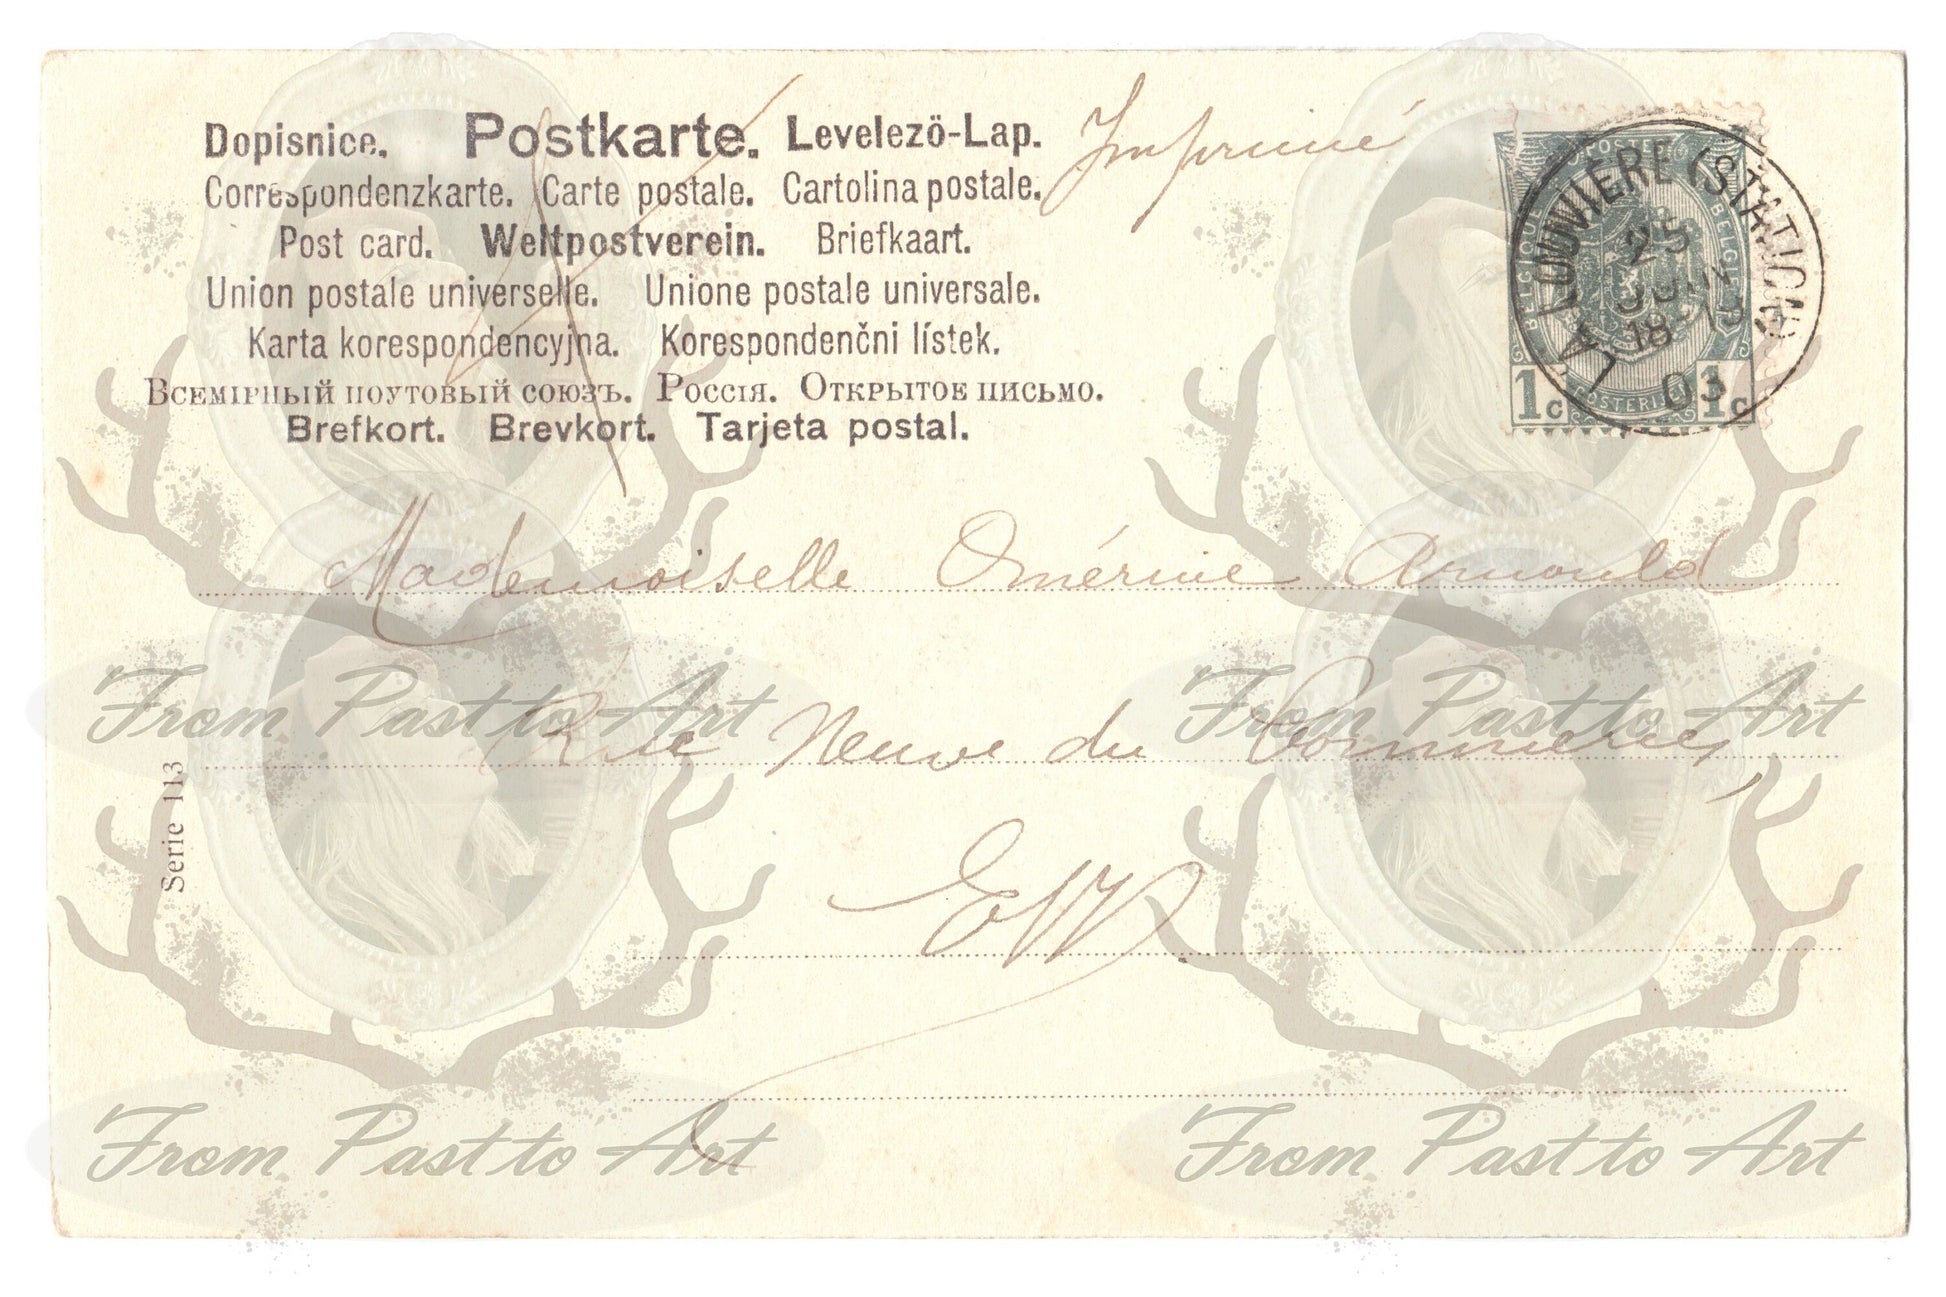 Dopisnice. Postkarte. Levelezö-Lap.
Imprimé
Correspondenzkarte. Carte postale. Cartolina postale.
Post card. Weltpostverein. Briefkaart.
Union postale universelle. Unione postale universale.
Karta korespondencyjna. Korespondenčni lístek.
Всемірный поутовый союзъ. Россія. Открытое письмо.
Brefkort. Brevkort. Tarjeta postal.
BELGIQUE POSTERIJEN BELGIE
1c 1c
LA LOUVIERE (STATION)
25
JUIN
18-19
03
Mademoiselle Omérine Arnould
Rue Neuve du
E/V
Serie 113
From Past to Art From Past to Art
From Past to Art From Past to Art